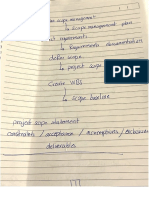 scope management
↳ scope management plan
requirements
↳ requirements documentation
define scope
↳ project scope
Create WBS
↳ scope baseline
project scope statement
constraints / acceptance / assumptions / exclusions
deliverables